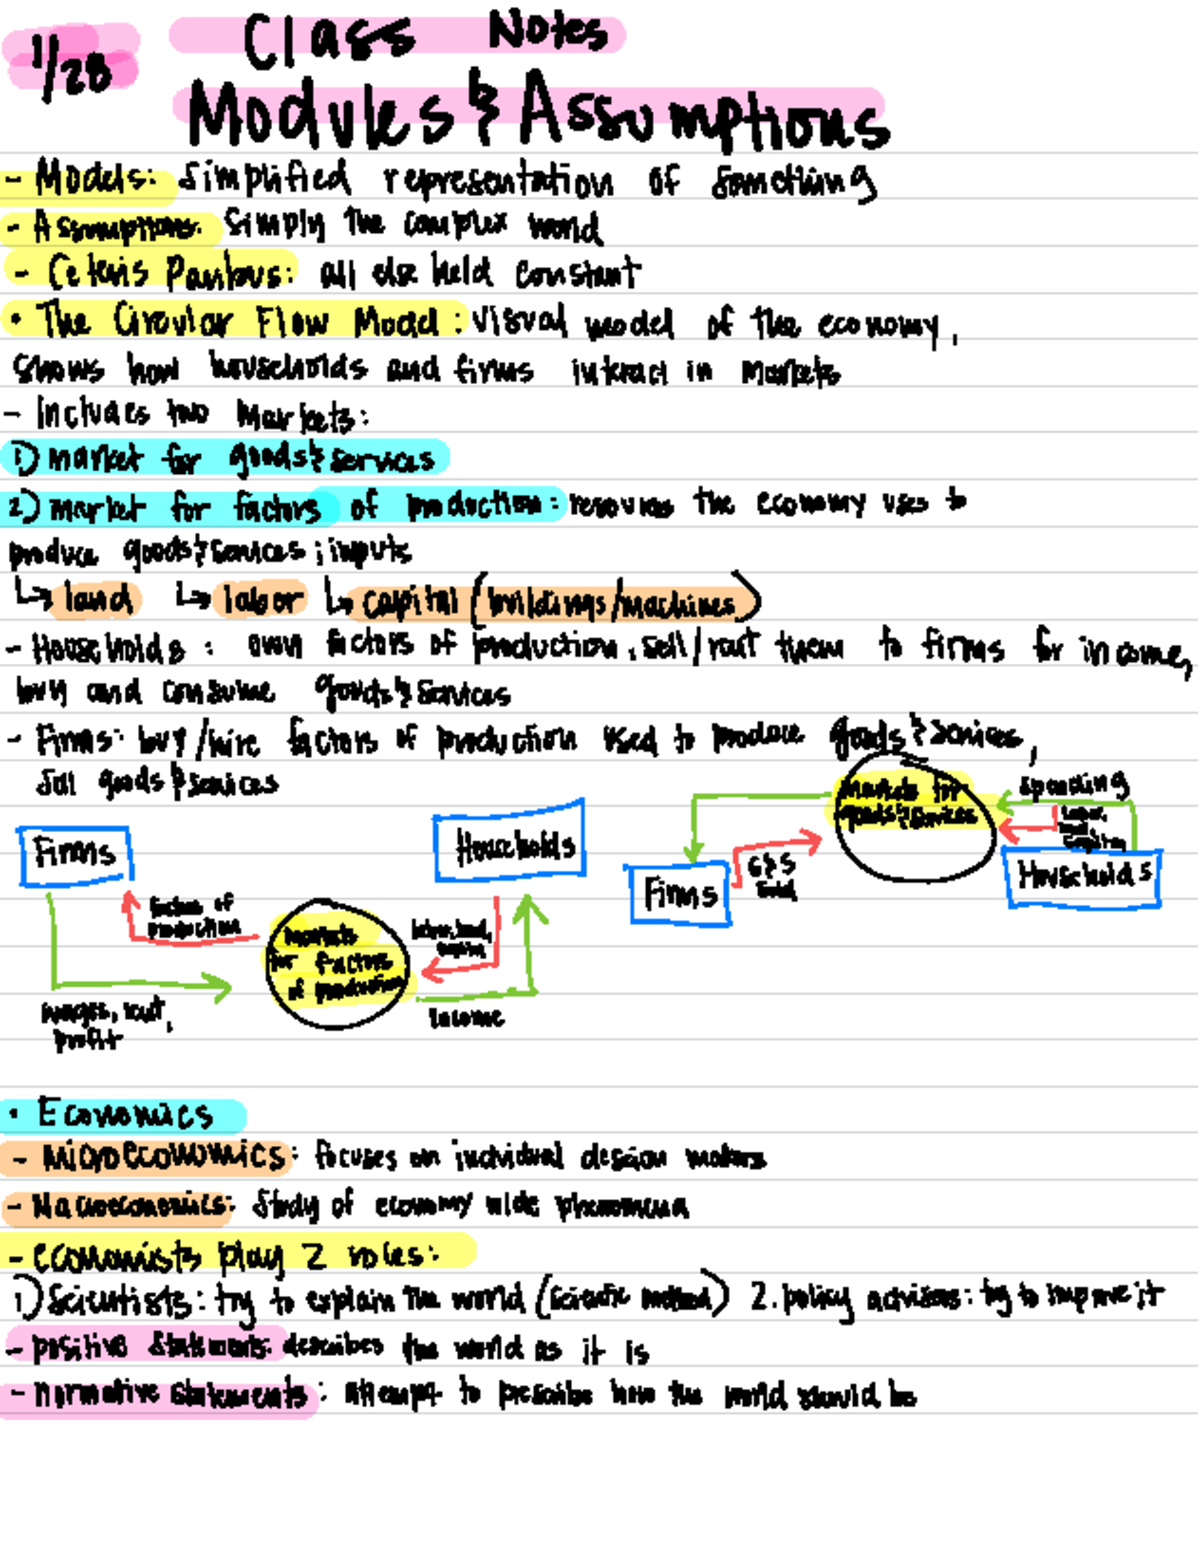 1/28
Class Notes
Modules & Assumptions
- Models: Simplified representation of something
- Assumptions: Simply the complex world
- Ceteris Paribus: all else held constant
• The Circular Flow Model: visual model of the economy,
shows how households and firms interact in markets
- Includes two markets:
1) market for goods & services
2) market for factors of production: resources the economy uses to
produce goods & services; inputs
↳ land ↳ labor ↳ capital (buildings/machines)
- Households: own factors of production, sell/rent them to firms for income,
buy and consume goods & services
- Firms: buy/hire factors of production used to produce goods & services,
sell goods & services
Markets for
goods & services
Spending
labor,
land,
capital
Firms
Households
Firms
G & S
sold
Households
factors of
production
markets
for factors
of production
labor, land,
capital
wages, rent,
profit
Income
• Economics
- Microeconomics: focuses on individual desicion makers
- Macroeconomics: Study of economy wide phenomena
- economists play 2 roles:
1) Scientists: try to explain the world (scientific method) 2. policy advisors: try to improve it
- positive statements: describes the world as it is
- normative statements: attempt to prescribe how the world should be